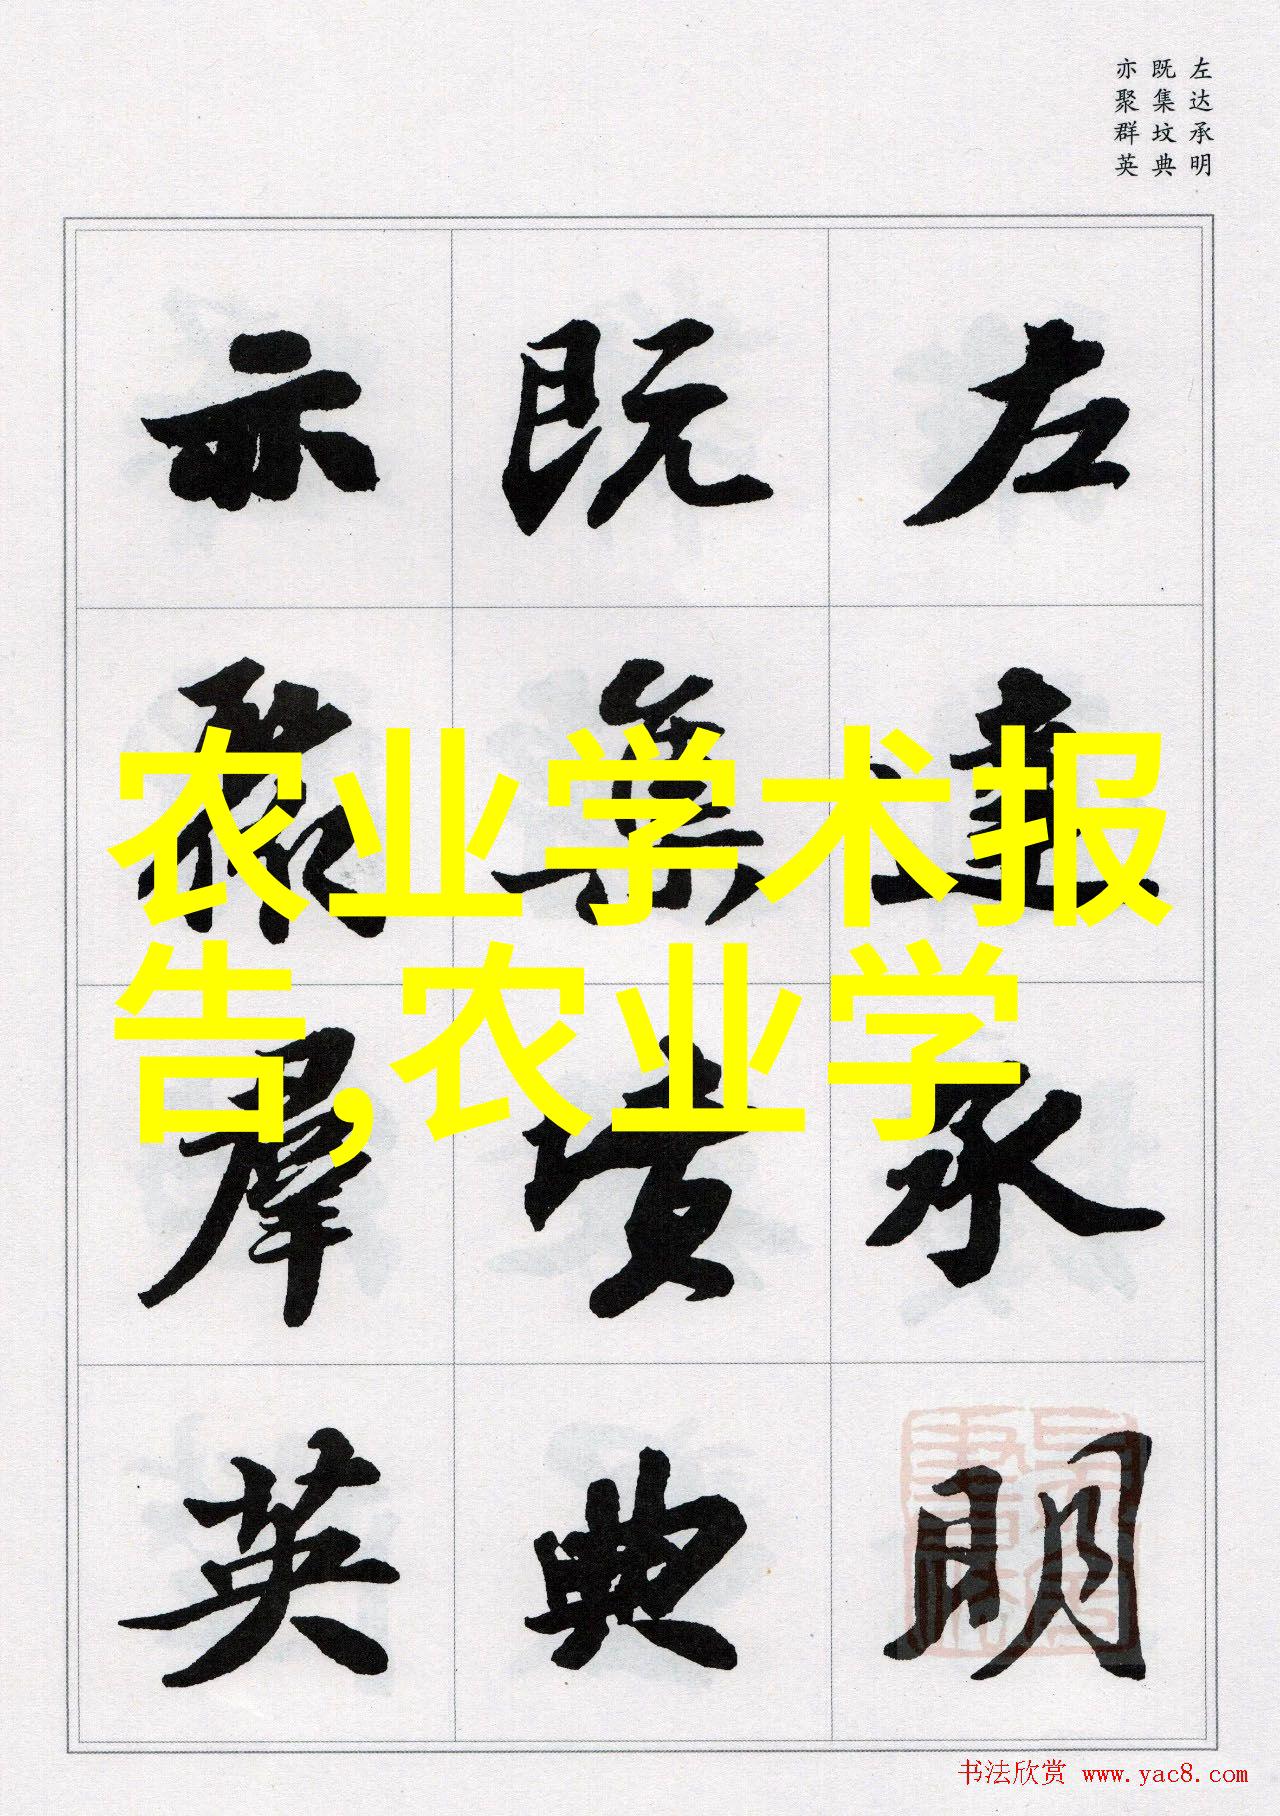 左达承明
既集坟典
亦聚群英
左達承明
既集墳典
亦聚羣英
农业学术报
告,农业学
书法欣赏 www.yac8.com